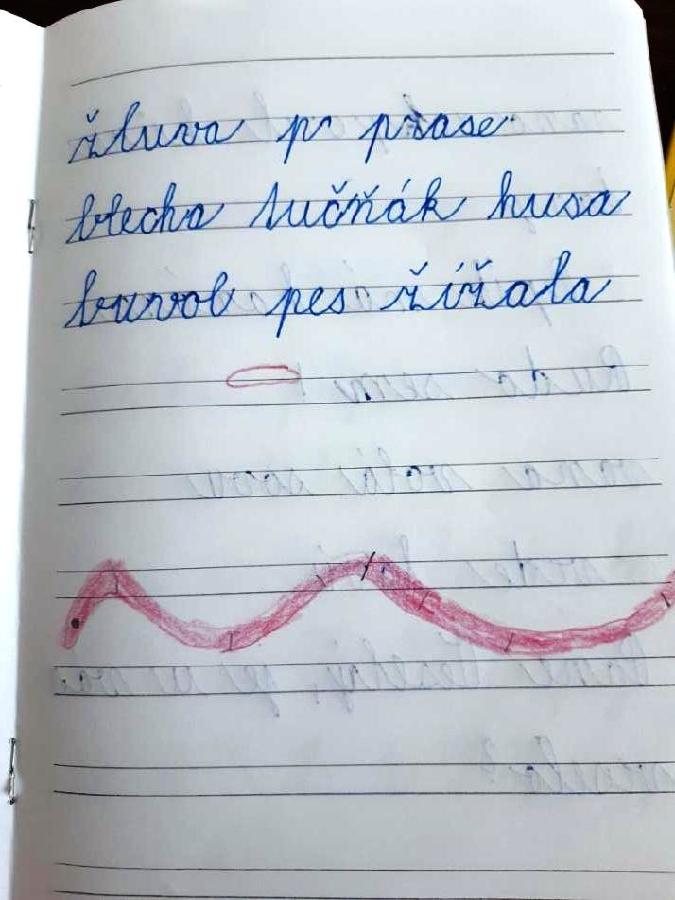 žluva pr prase
blecha tučňák husa
buvol pes žížala